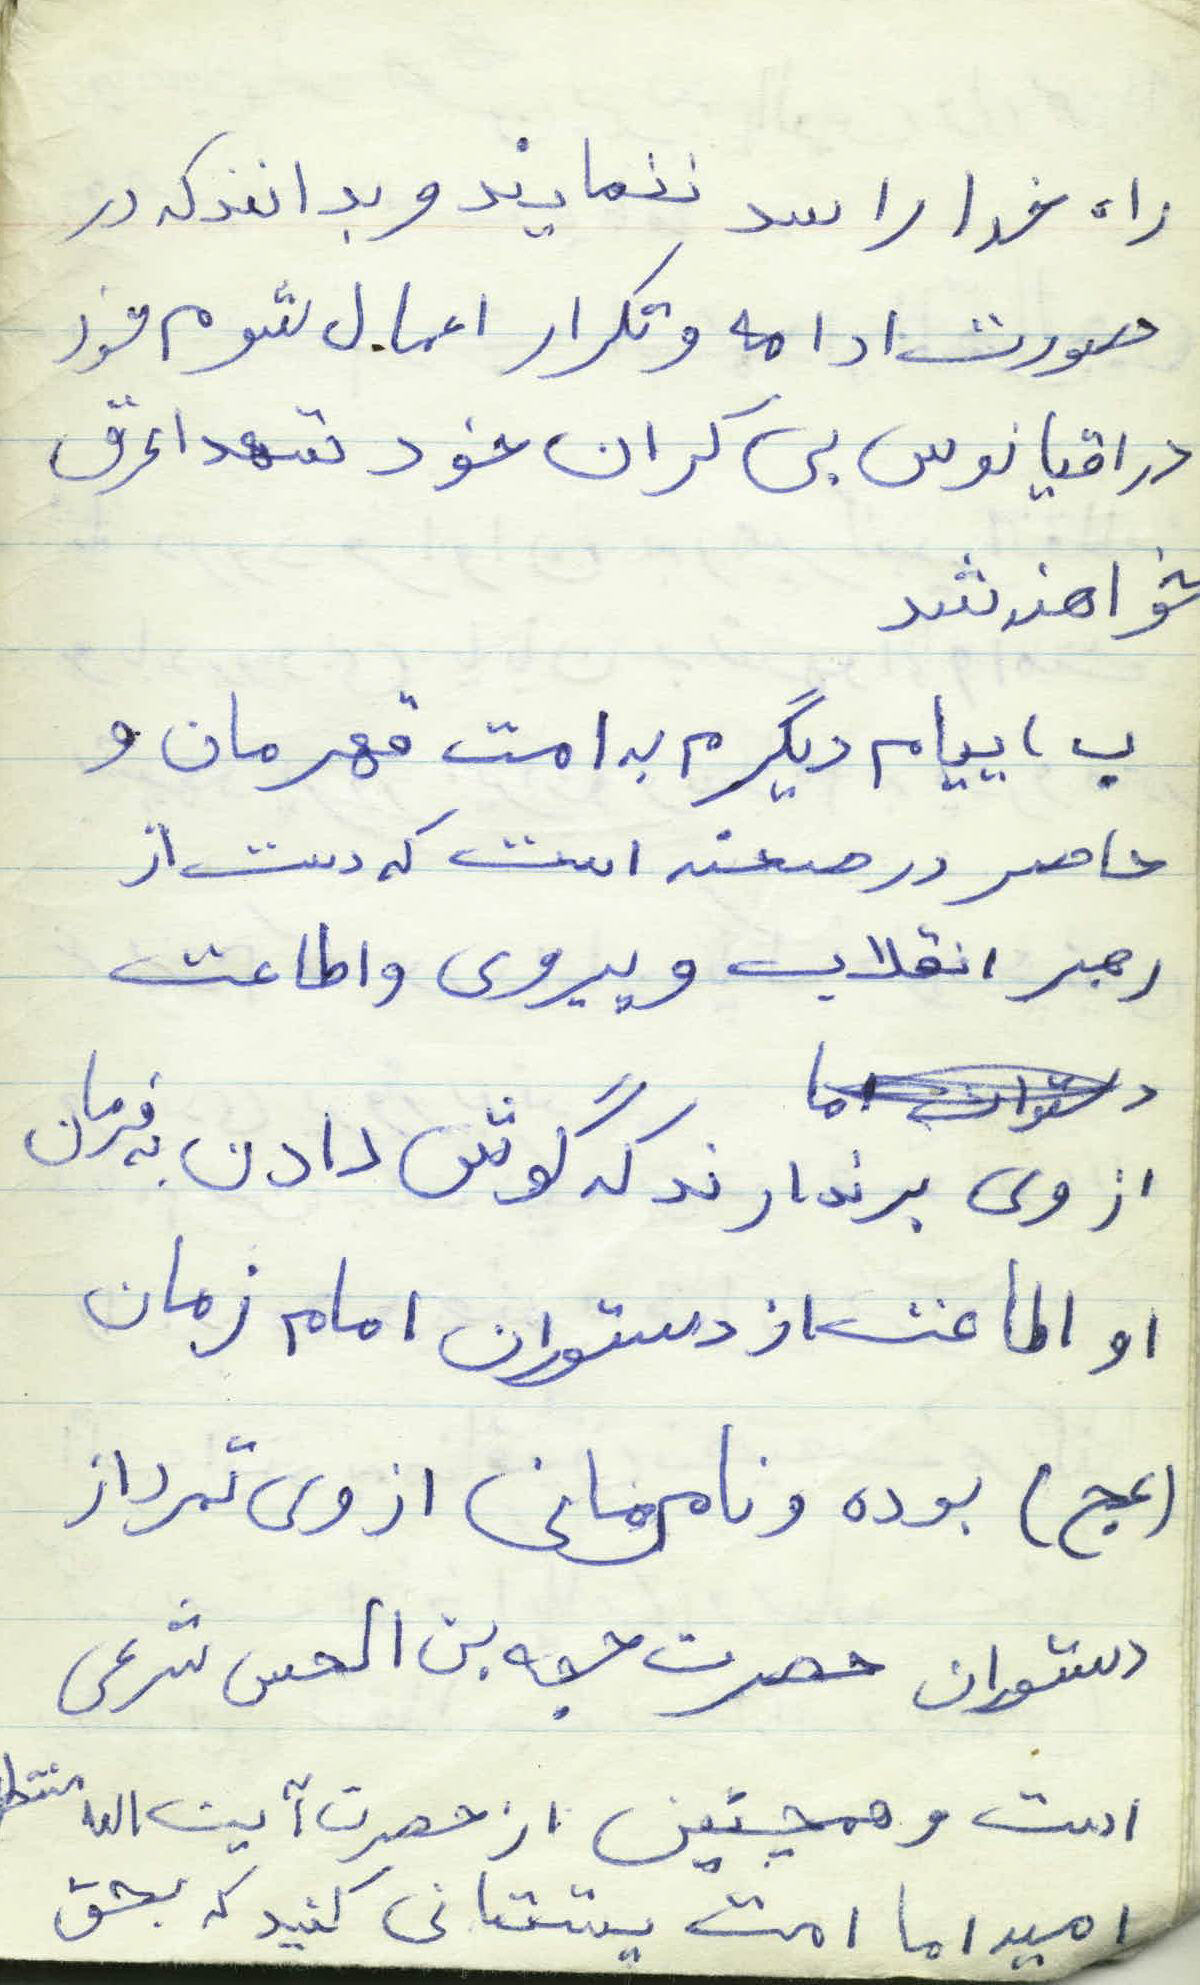 راه خدا را سد ننمایند و بدانند که در
صورت ادامه و تکرار اعمال شوم خود
در اقیانوس بی کران خود شهدا غرق
خواهند شد
ب ، پیام دیگرم به امت قهرمان و
حاضر در صحنه است که دست از
رهبر انقلاب و پیروی و اطاعت
از وی برندارند که گوش دادن به فرمان
او اطاعت از دستورات امام زمان
(عج) بوده و نافرمانی از وی تمرد از
دستورات حضرت حجه بن الحسن شرعی
است و همچنین از حضرت آیت الله منتظ
امید اما امت پشتبانی کنید که بحق